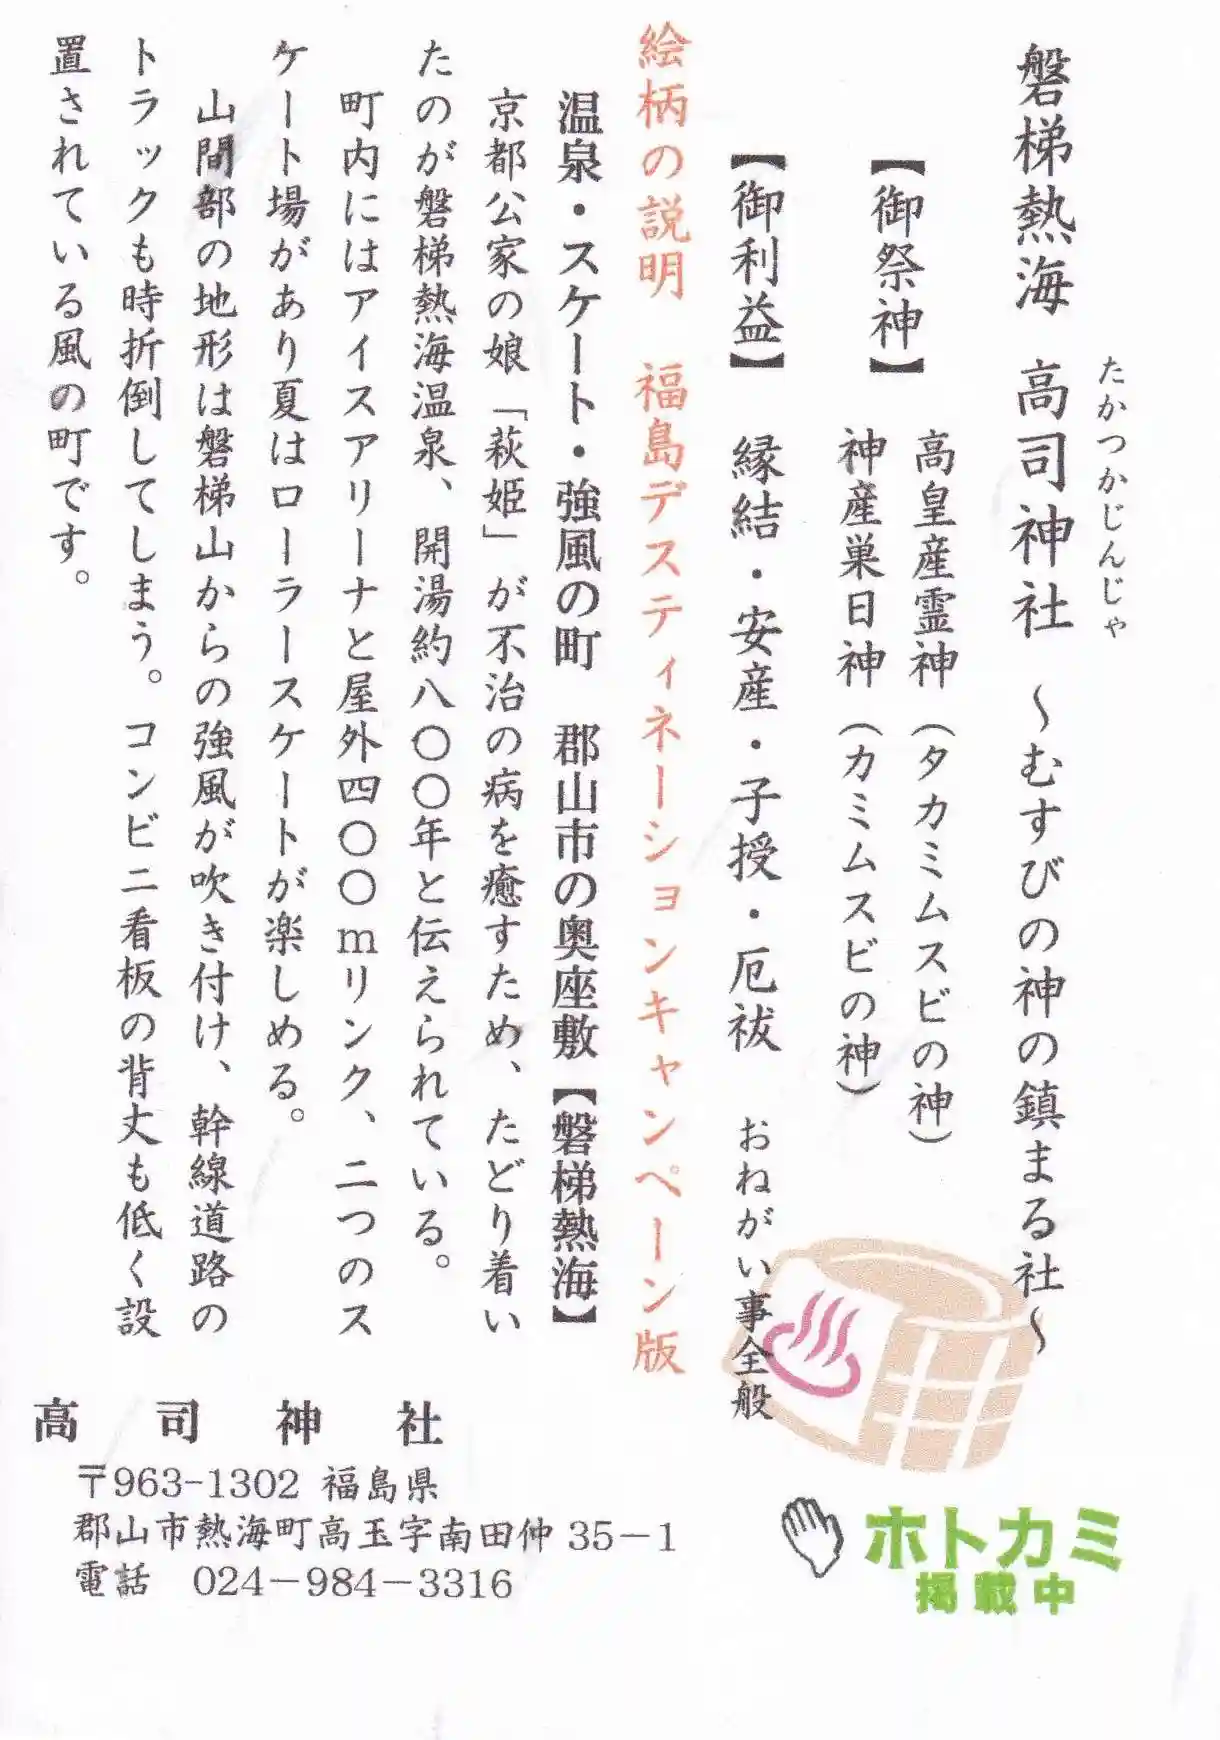 磐梯熱海　高司神社　～むすびの神の鎮まる社～
たかつかじんじゃ
【御祭神】　高皇産霊神（タカミムスビの神）
神産巣日神（カミムスビの神）
【御利益】　縁結・安産・子授・厄祓　おねがい事全般
絵柄の説明　福島デスティネーションキャンペーン版
温泉・スケート・強風の町　郡山市の奥座敷【磐梯熱海】
京都公家の娘「萩姫」が不治の病を癒すため、たどり着い
たのが磐梯熱海温泉、開湯約八〇〇年と伝えられている。
町内にはアイスアリーナと屋外四〇〇ｍリンク、二つのス
ケート場があり夏はローラースケートが楽しめる。
山間部の地形は磐梯山からの強風が吹き付け、幹線道路の
トラックも時折倒してしまう。コンビニ看板の背丈も低く設
置されている風の町です。
高司神社
〒963-1302 福島県
郡山市熱海町高玉字南田仲 35－1
電話　024－984－3316
ホトカミ
掲載中